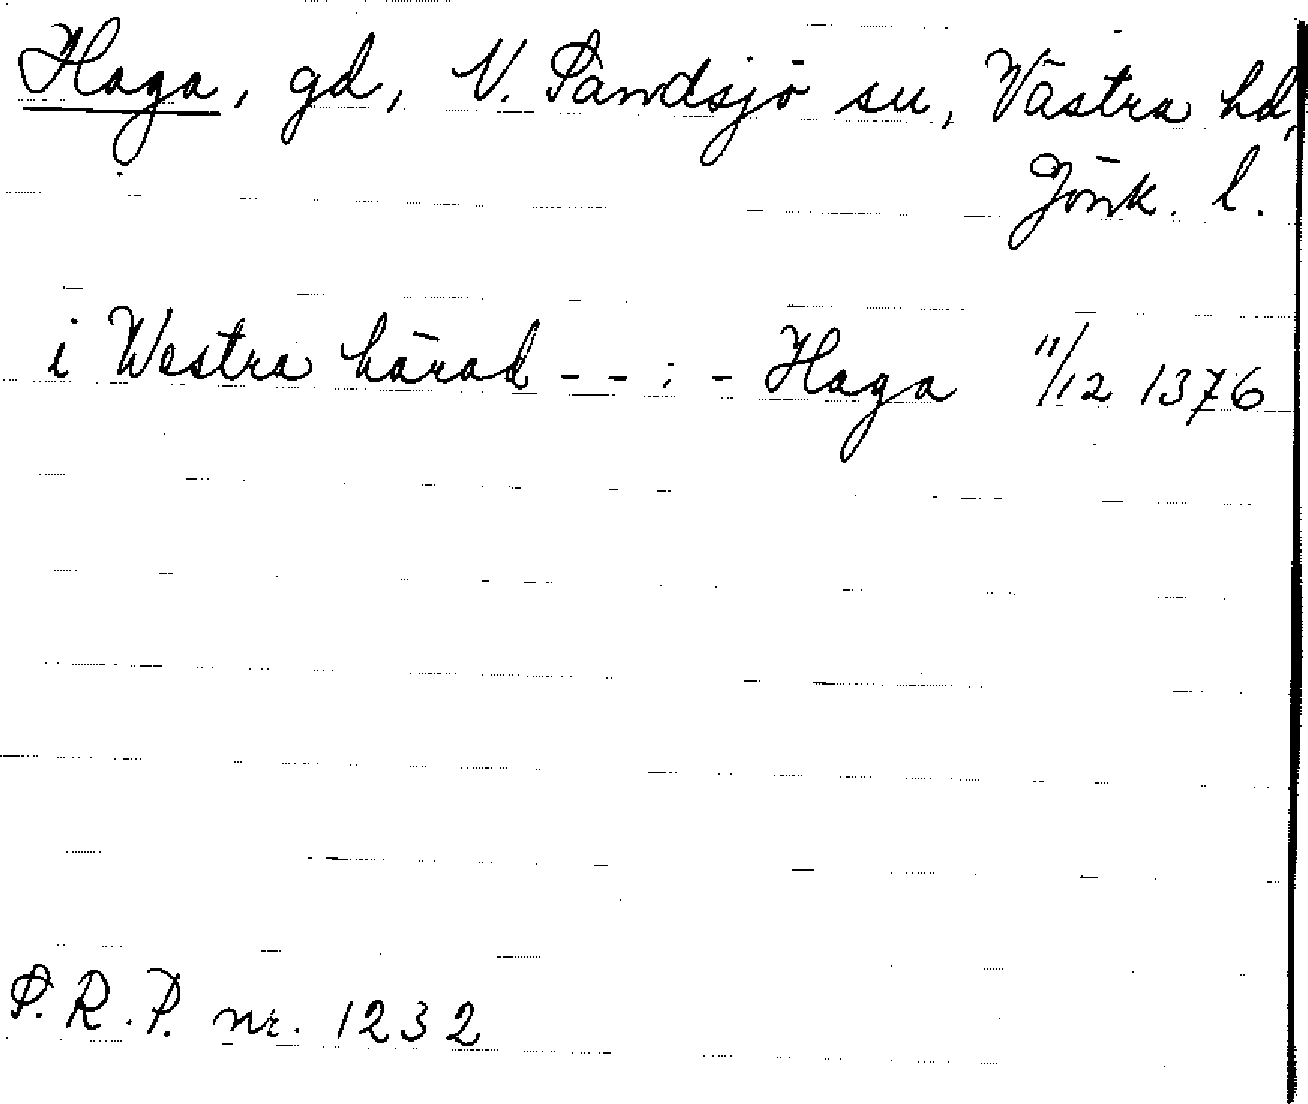 Haga, gd, N. Sandsjö sn, Västra hd,
Jönk. l.
i Westra härad - - : - Haga 11/12 1376
S. R. P. nr. 1232